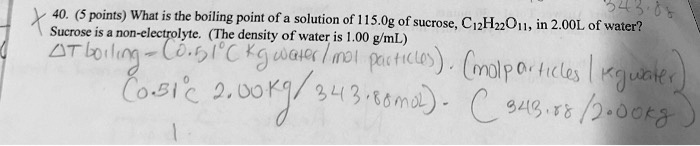 343.88
X 40. (5 points) What is the boiling point of a solution of 115.0g of sucrose, C₁₂H₂₂O₁₁, in 2.00L of water?
Sucrose is a non-electrolyte. (The density of water is 1.00 g/mL)
ΔT boiling = (0.51°C Kg water / mol particles) . (mol particles / Kg water)
(0.51°C 2.00Kg / 343.88mol) - ( 343.88 / 2.00kg )
1